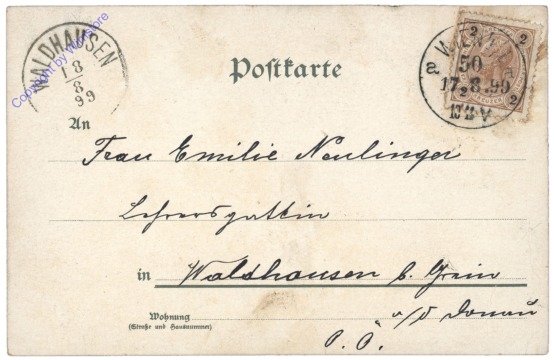 WALDHAUSEN
18
8
99
Copyright by
Postkarte
WIEN
50
17.8.99
2 2
2 2
An
Frau Emilie Neulinger
Lehrersgattin
in Waldhausen b. Grein
a/d Donau
Wohnung
(Straße und Hausnummer)
O. Ö.